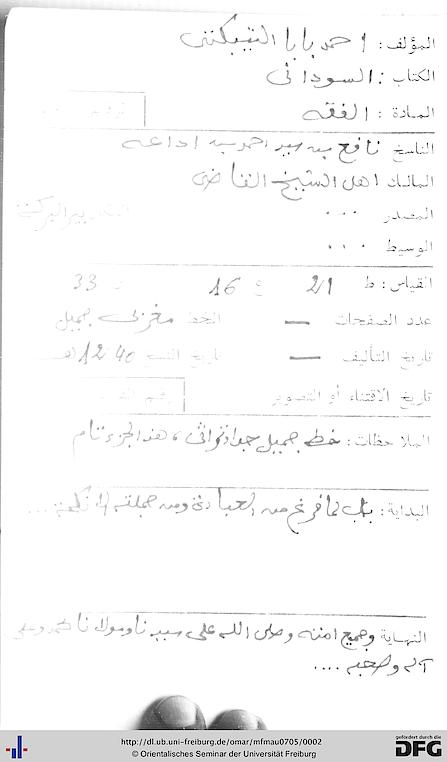 المؤلف: احمد بابا التنبكتي
الكتاب: السوداني
المادة: الفقه
الناسخ نافع بن سيد احمد بن اداعة
المالك اهل الشيخ القاضي
المصدر ...
الوسيط ...
القياس: ط 21 ع 16 س 33
عدد الصفحات — الخط مغربي جميل
تاريخ التأليف — تاريخ النسخ 1240هـ
تاريخ الاقتناء أو التصوير
الملاحظات: خطه جميل جدا، هذا الجزء تام
البداية: باب لما فرغ من العبادة ومن جملته ...
النهاية وجميع امته وصلى الله على سيدنا ومولانا محمد وعلى
آله وصحبه ....
http://dl.ub.uni-freiburg.de/omar/mfmau0705/0002
© Orientalisches Seminar der Universität Freiburg
gefördert durch die
DFG